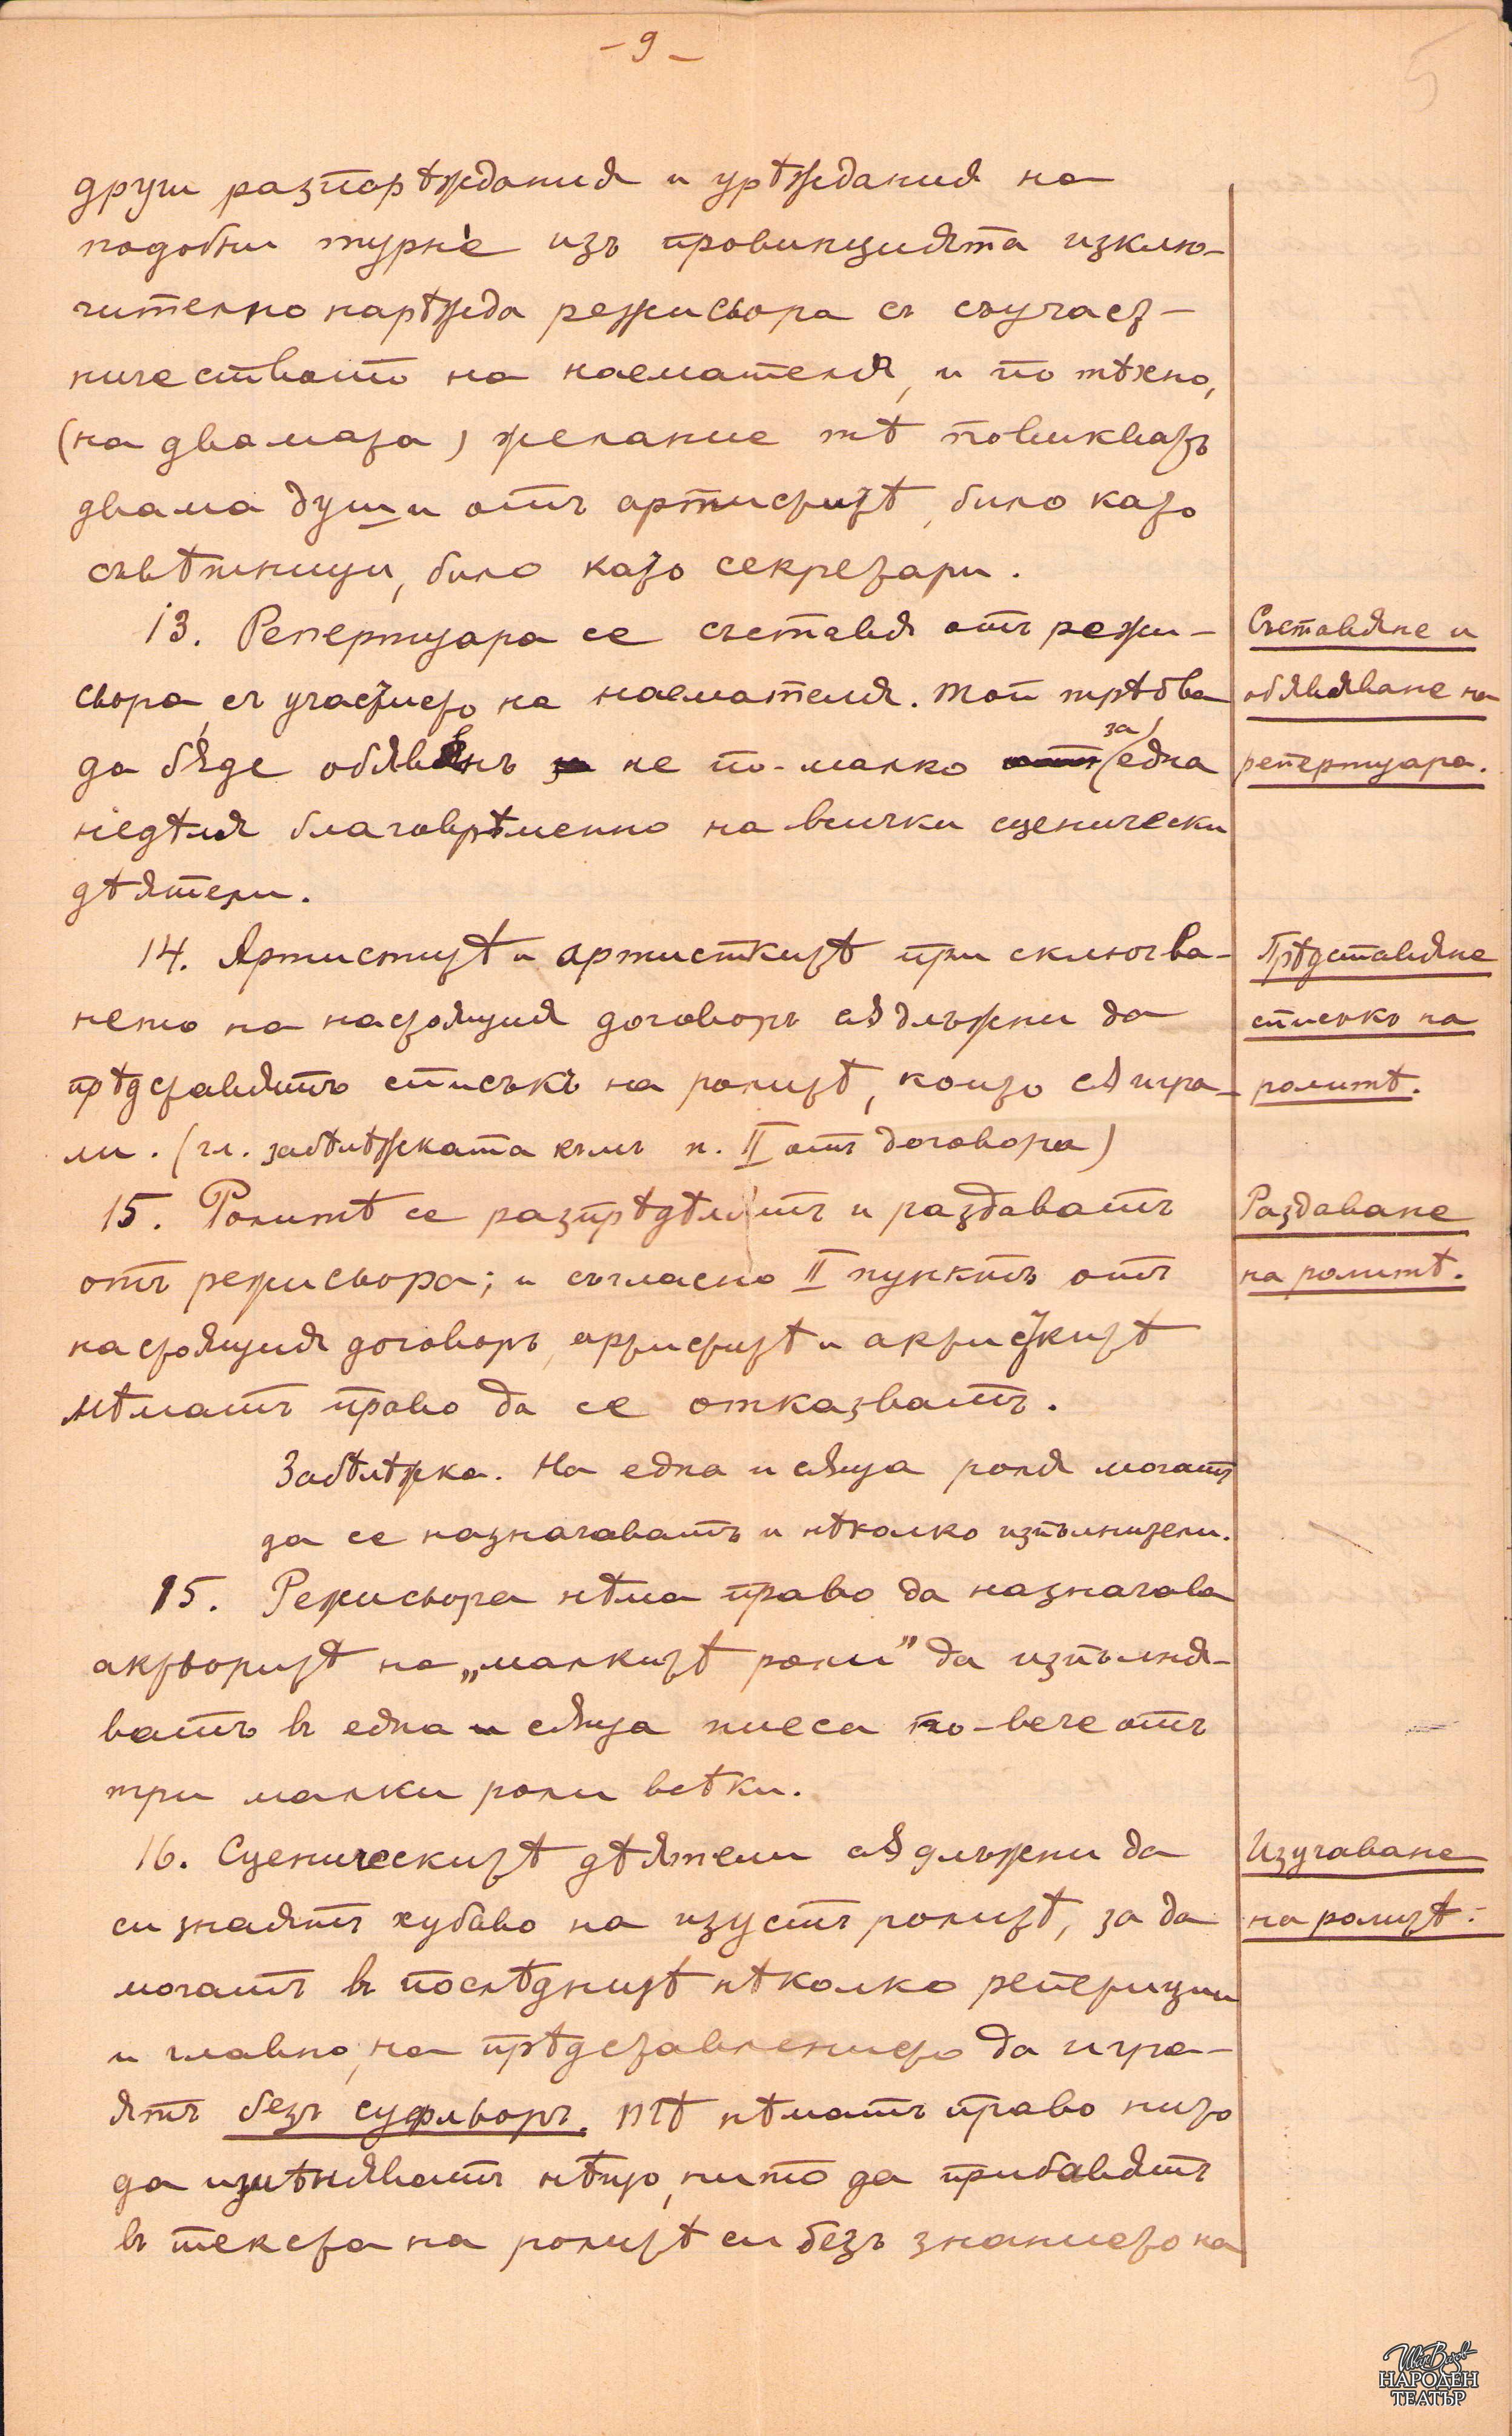 - 9 -
5
други разпорѣждания и урѣждания на
подобни турнѐ изъ провинцията изклю-
чително нарѣжда режисьора съ съучаст-
ничеството на наемателя, и по тѣхно,
(на двамата) желание тѣ повикватъ
двама души отъ артиститѣ, било като
съвѣтници, било като секретари.
13. Репертуара се съставя отъ режи-
Съставяне и
сьора, съ участието на наемателя. Той трѣбва
обявяване на
да бѫде обявенъ за не по-малко отъ за една
репертуара.
недѣля благоврѣменно на всички сценически
дѣятели.
14. Артиститѣ и артисткитѣ при сключва-
Прѣдставяне
нето на настоящия договоръ сѫ длъжни да
списъкъ на
прѣдставятъ списъкъ на ролитѣ, които сѫ игра-
ролитѣ.
ли. (гл. забѣлѣжката къмъ п. II отъ договора)
15. Ролитѣ се разпрѣдѣлятъ и раздаватъ
Раздаване
отъ режисьора; и съгласно II пунктъ отъ
на ролитѣ.
настоящия договоръ, артиститѣ и актрискитѣ
нѣматъ право да се отказватъ.
Забѣлѣжка. На една и сѫща роля могатъ
да се назначаватъ и нѣколко изпълнители.
15. Режисьора нѣма право да назначава
актьоритѣ на „малкитѣ роли” да изпълня-
ватъ въ една и сѫща пиеса по-вече отъ
три малки роли всѣки.
16. Сценическитѣ дѣятели сѫ длъжни да
Изучаване
си знаятъ хубаво на изустъ ролитѣ, за да
на ролитѣ.
могатъ въ послѣднитѣ нѣколко репетиции
и главно, на прѣдставлението да игра-
ятъ безъ суфльоръ. Тѣ нѣматъ право нито
да измѣняватъ нѣщо, нито да прибавятъ
въ текста на ролитѣ си безъ знанието на
Иван Вазов
НАРОДЕН
ТЕАТЪР